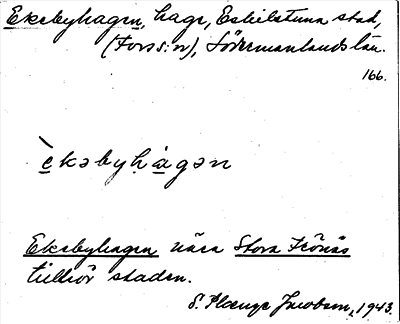 Ekebyhagen, hage, Eskilstuna stad,
(Fors s:n), Södermanlands län.
166.
èkəbyhàgən
Ekebyhagen nära Stora
tillhör staden.
S. Jacobson, 1943.